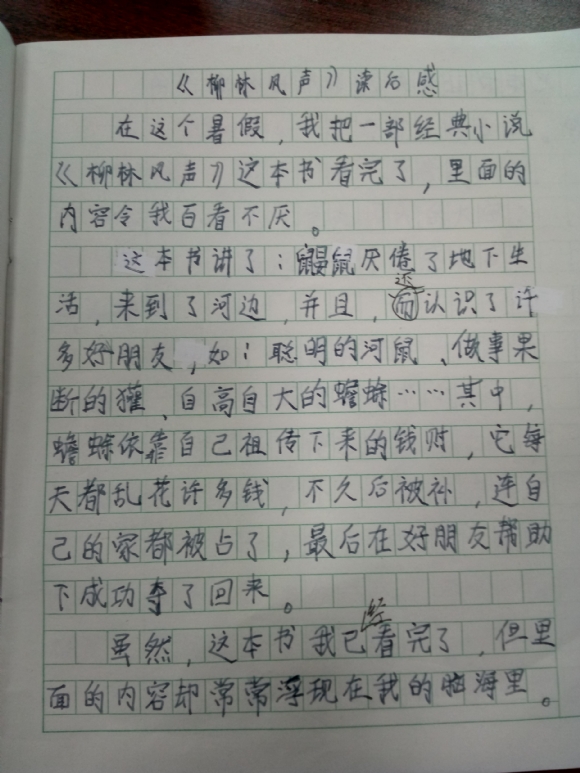 《柳林风声》读后感
在这个暑假，我把一部经典小说
《柳林风声》这本书看完了，里面的
内容令我百看不厌。
这本书讲了：鼹鼠厌倦了地下生
活，来到了河边，并且，还认识了许
多好朋友，如：聪明的河鼠、做事果
断的獾、自高自大的蟾蜍……其中，
蟾蜍依靠自己祖传下来的钱财，它每
天都乱花许多钱，不久后被补，连自
己的家都被占了，最后在好朋友帮助
下成功夺了回来。
虽然，这本书我已经看完了，但里
面的内容却常常浮现在我的脑海里。